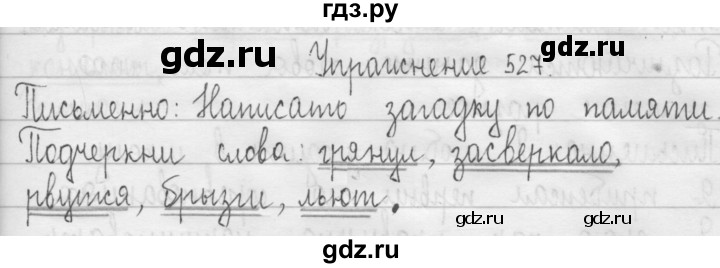 гдз.ру
gdz.ru gdz.ru
Упражнение 527.
Письменно: Написать загадку по памяти.
Подчеркни слова: грянул, засверкало,
рвутся, брызги, льют.
gdz.ru gdz.ru
gdz.ru